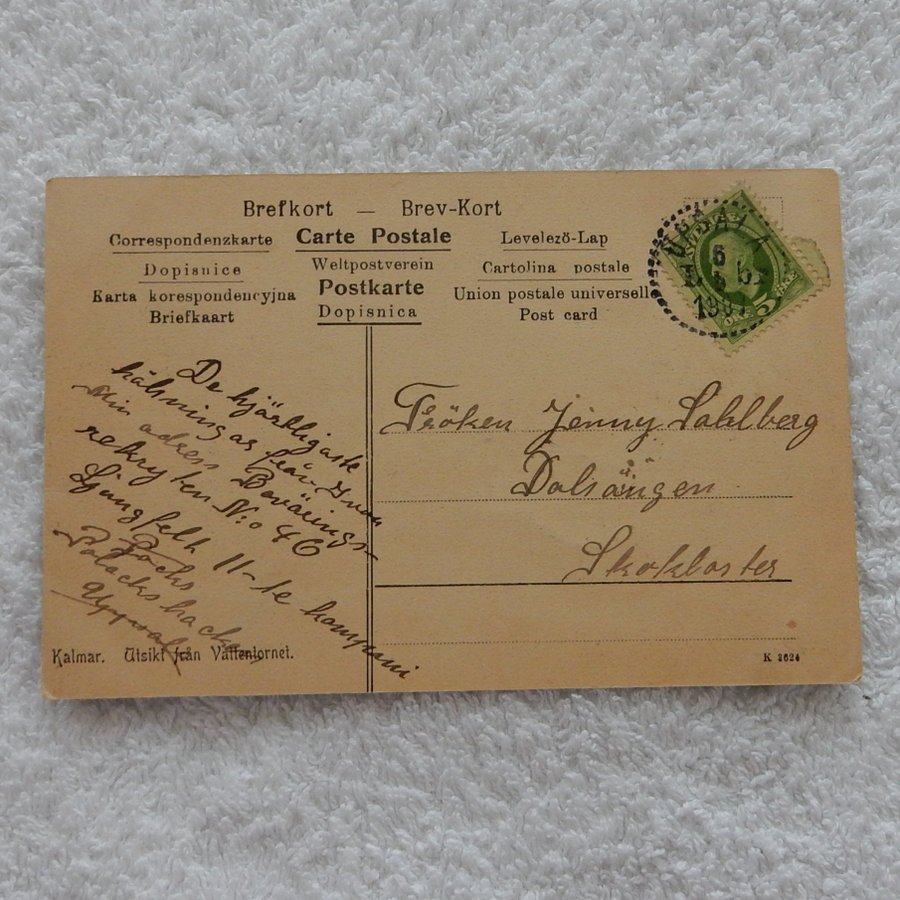 Brefkort — Brev-Kort
Correspondenzkarte Carte Postale Levelező-Lap
Dopisnice Weltpostverein Cartolina postale
Karta korespondencyjna Postkarte Union postale universell
Briefkaart Dopisnica Post card
UPSALA
6
1907
5
De hjärtligaste
hälningar från
Min adress Bevärings-
rekryten No 46
Ljungfelt 11-te kompani
Polacksbacken
Fröken Jenny Sahlberg
Dalsängen
Skokloster
Kalmar. Utsikt från Vattentornet.
K 2624